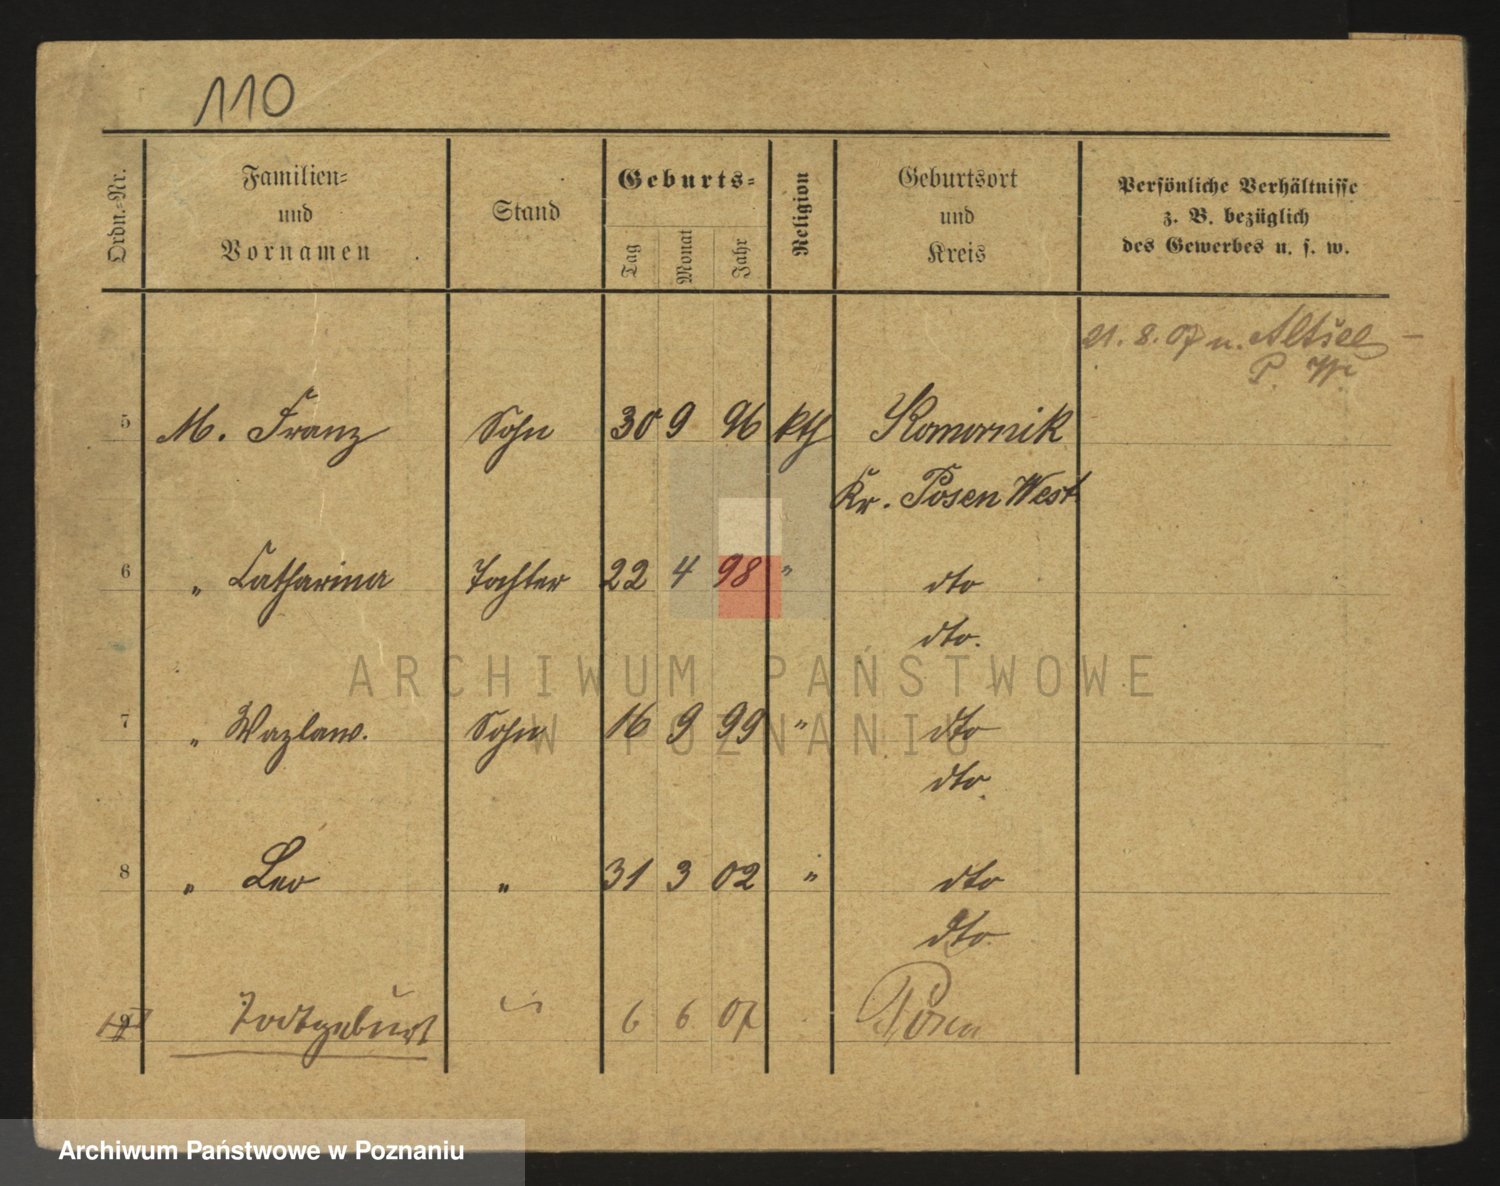 110
Ordn.-Nr.
Familien-
und
Vornamen
Stand
Geburts-
Tag
Monat
Jahr
Religion
Geburtsort
und
Kreis
Persönliche Verhältnisse
z. B. bezüglich
des Gewerbes u. s. w.
21. 8. 07 n. Altsee
5 M. Franz Sohn 30 9 96 kth Komornik
Kr. Posen West
6 " Catharina Tochter 22 4 98 " dto
dto.
ARCHIWUM PAŃSTWOWE
7 " Wazlaw. Sohn 16 9 99 " dto
W POZNANIU
dto.
8 " Leo " 31 3 02 " dto
dto.
9 Todtgeburt 6 6 07 Posen
Archiwum Państwowe w Poznaniu